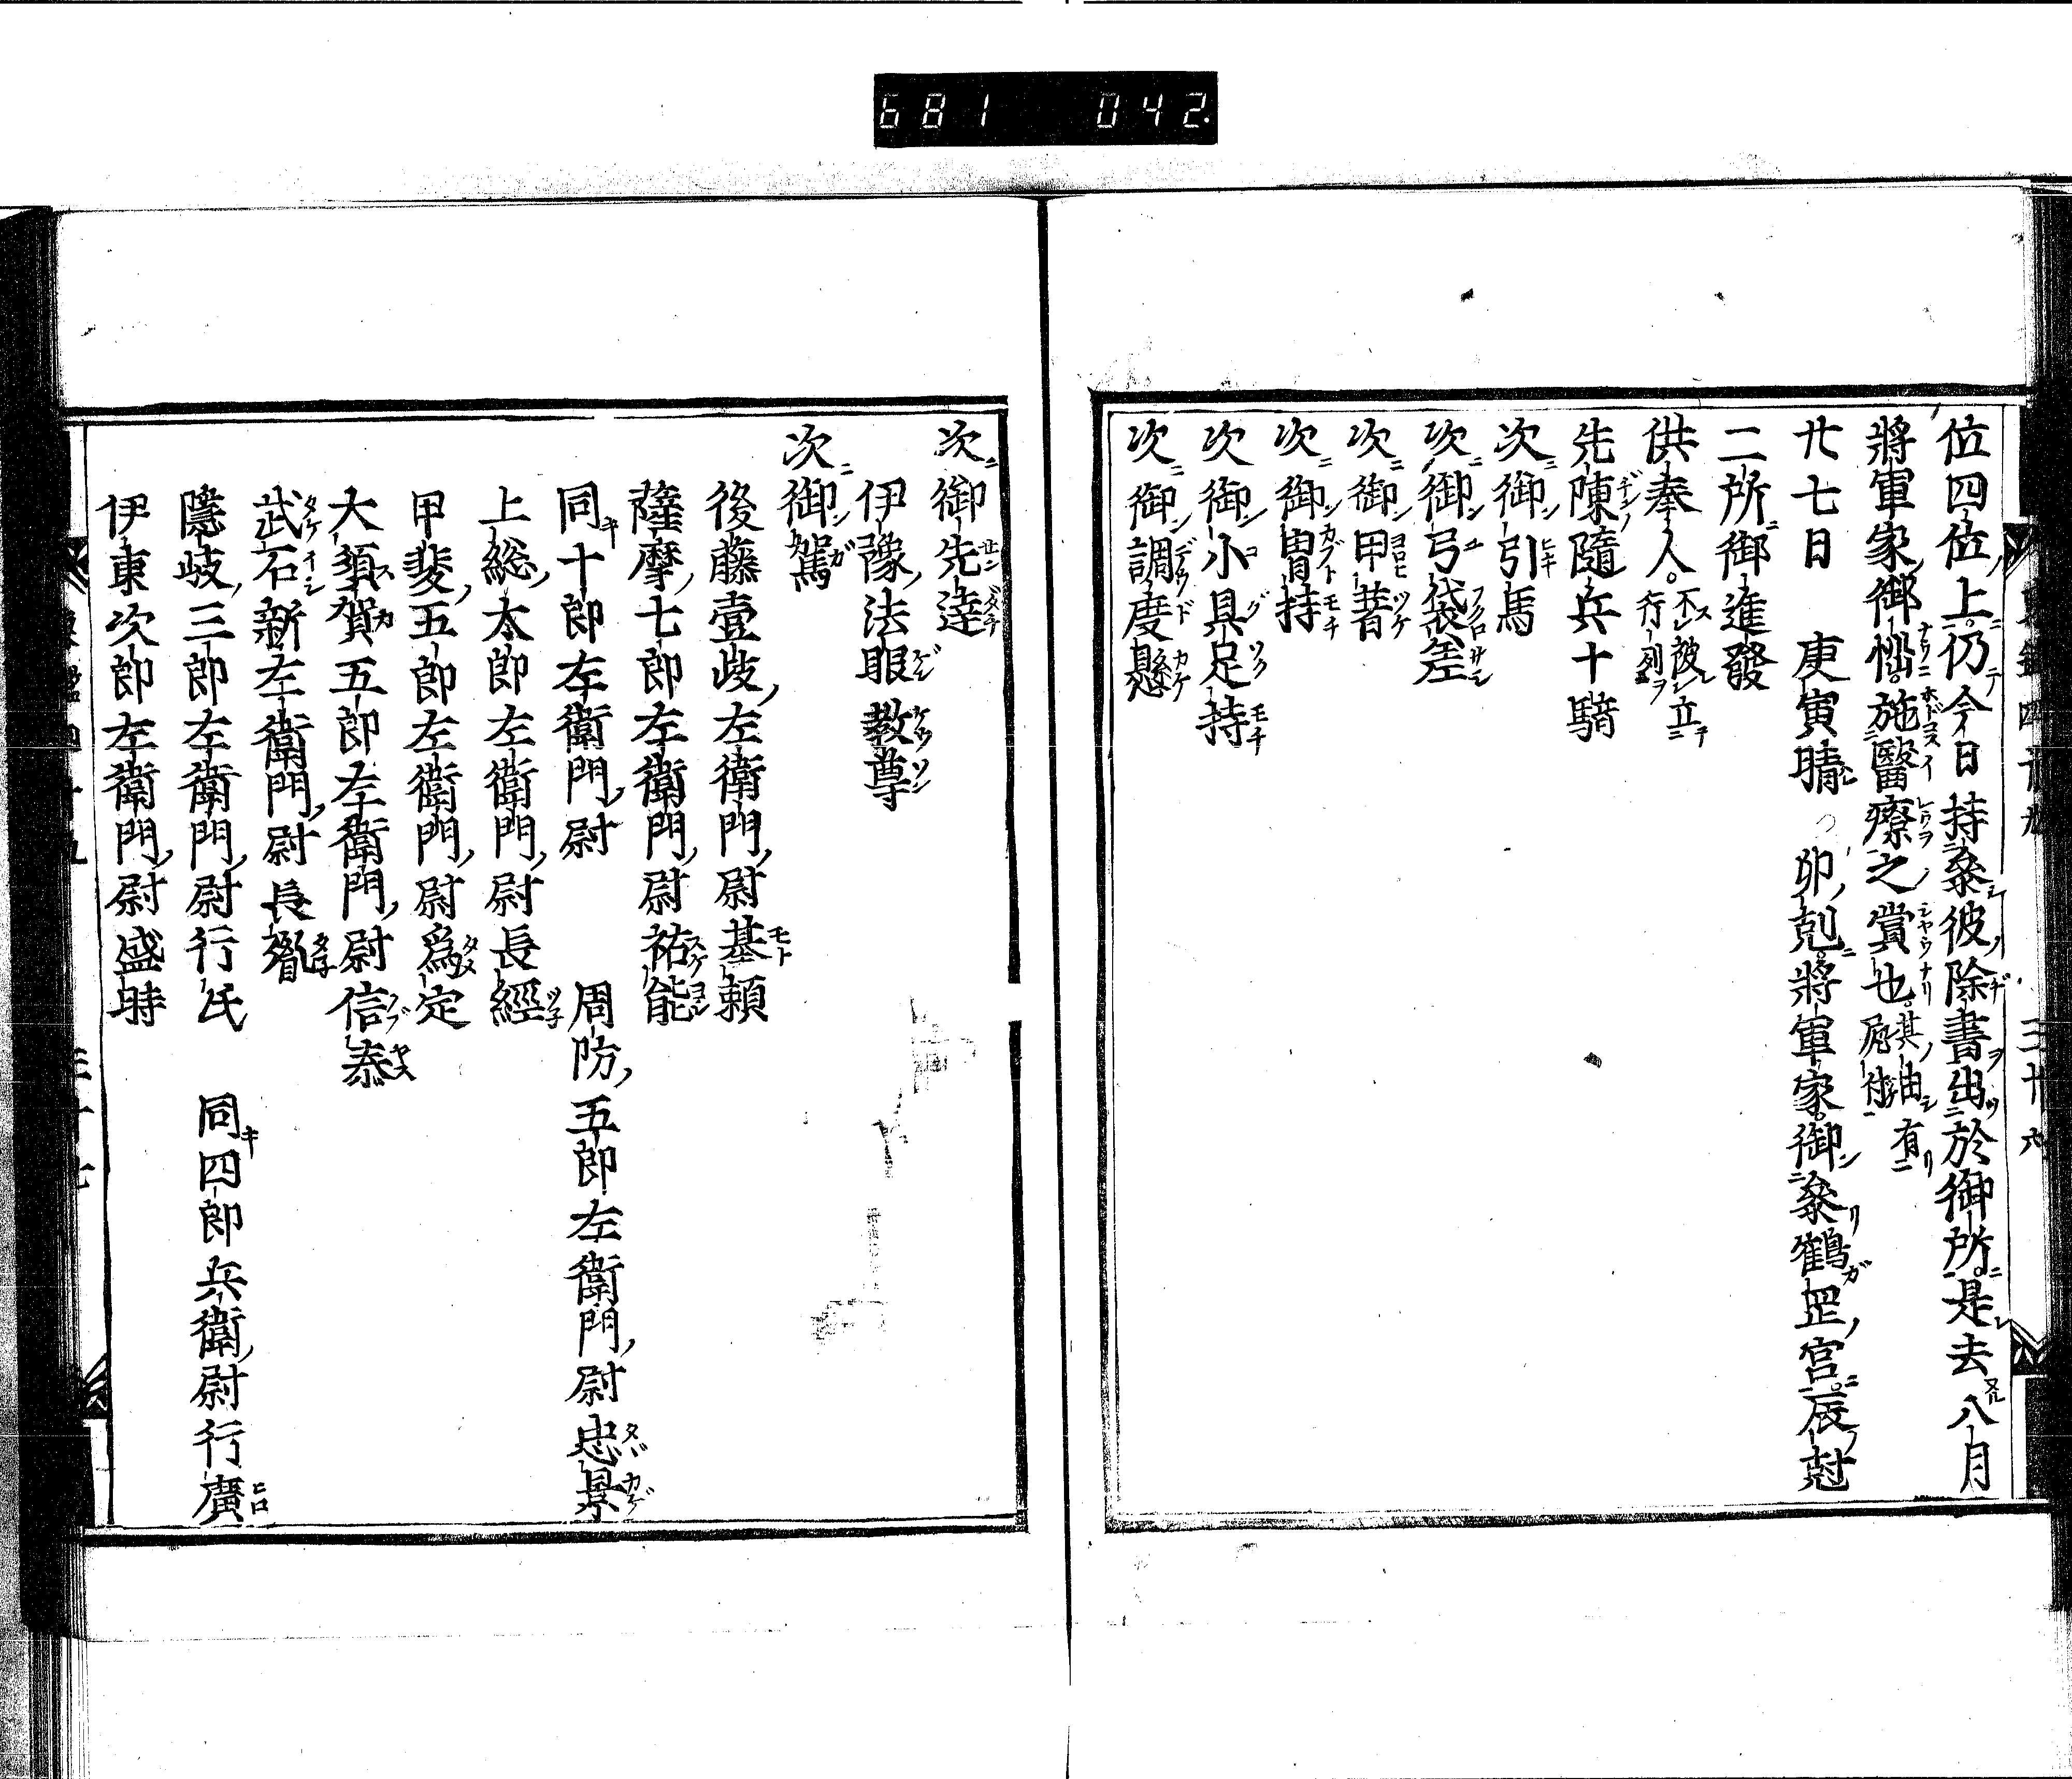 681 042.
位四位上仍今日持參彼除書出於御所是去八月
將軍家御惱施醫療之賞也其由有
尻付
廿七日 庚寅晴 卯剋將軍家御參鶴岡宮辰尅
二所御進發
供奉人不被立
行列
先陳隨兵十騎
次御引馬
次御弓袋差
次御甲著
次御冑持
次御小具足持
次御調度懸
次御先達
伊豫法眼教尊
次御駕
後藤壹岐左衛門尉基頼
薩摩七郎左衛門尉祐能
同十郎左衛門尉 周防五郎左衛門尉忠景
上総太郎左衛門尉長經
甲斐五郎左衛門尉爲定
大須賀五郎左衛門尉信泰
武石新左衛門尉長胤
隱岐三郎左衛門尉行氏 同四郎兵衛尉行廣
伊東次郎左衛門尉盛時